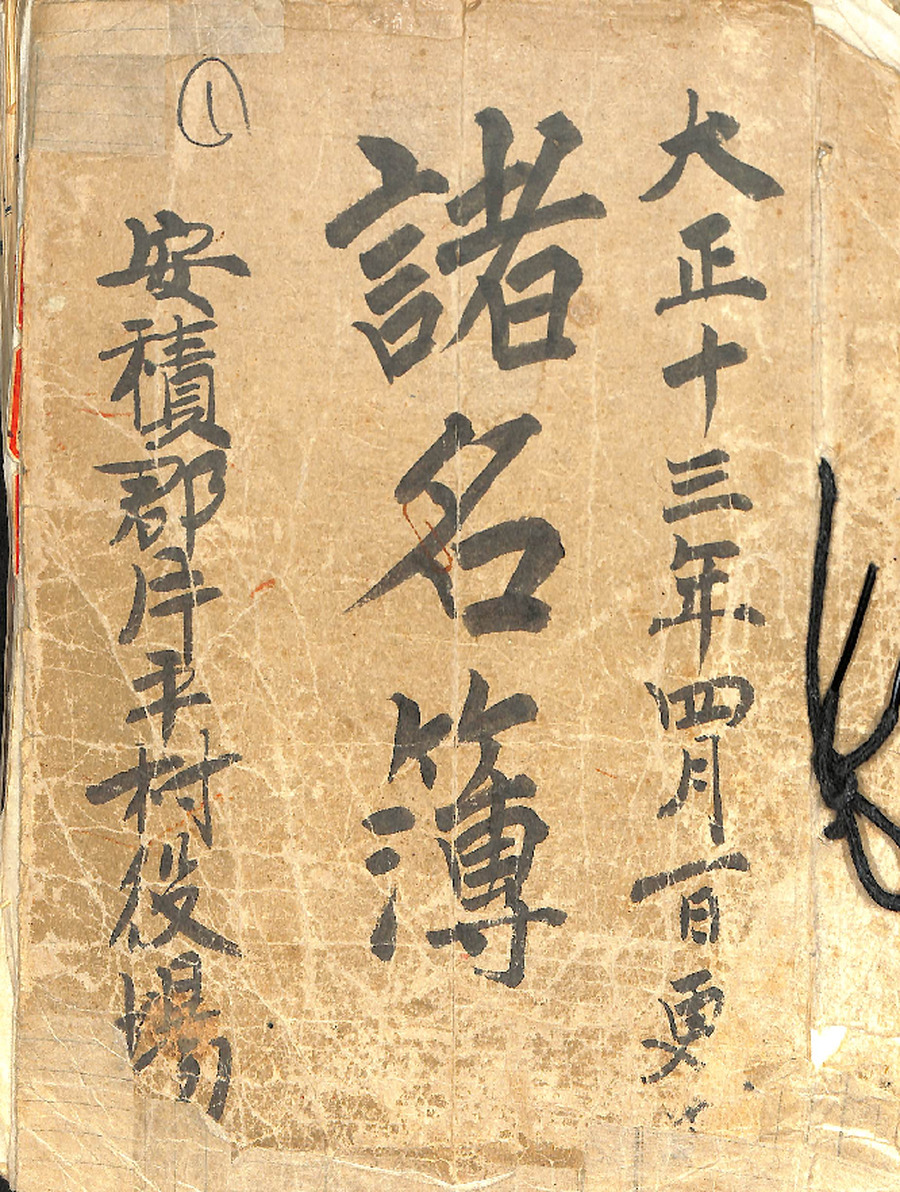 大正十三年四月一日更
諸名簿
安積郡片平村役場
①